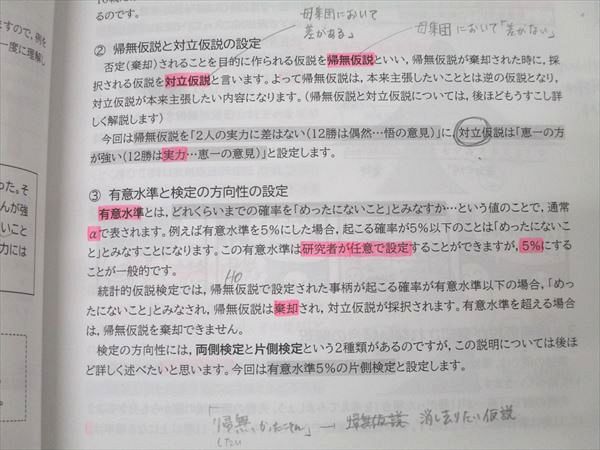 るのです。
母集団において
差がある」
母集団において「差がない」
② 帰無仮説と対立仮説の設定
否定(棄却)されることを目的に作られる仮説を帰無仮説といい, 帰無仮説が棄却された時に, 採
択される仮説を対立仮説と言います。よって帰無仮説は, 本来主張したいこととは逆の仮説となり,
対立仮説が本来主張したい内容になります。(帰無仮説と対立仮説については, 後ほどもうすこし詳
しく解説します)
今回は帰無仮説を「2人の実力に差はない(12勝は偶然…悟の意見)」に, 対立仮説は「恵一の方
が強い(12勝は実力…恵一の意見)」と設定します。
③ 有意水準と検定の方向性の設定
有意水準とは, どれくらいまでの確率を「めったにないこと」とみなすか…という値のことで, 通常
αで表されます。例えば有意水準を5%にした場合, 起こる確率が5%以下のことは「めったにないこ
と」とみなすことになります。この有意水準は研究者が任意で設定することができますが, 5%にする
ことが一般的です。
H0
統計的仮説検定では, 帰無仮説で設定された事柄が起こる確率が有意水準以下の場合, 「めっ
たにないこと」とみなされ, 帰無仮説は棄却され, 対立仮説が採択されます。有意水準を超える場合
は, 帰無仮説を棄却できません。
検定の方向性には, 両側検定と片側検定という2種類があるのですが, この説明については後ほ
ど詳しく述べたいと思います。今回は有意水準5%の片側検定と設定します。
帰無仮説 消し去りたい仮説
したい
ますので, 例を
一度に理解し
った。そ
んが強
いこと
力には